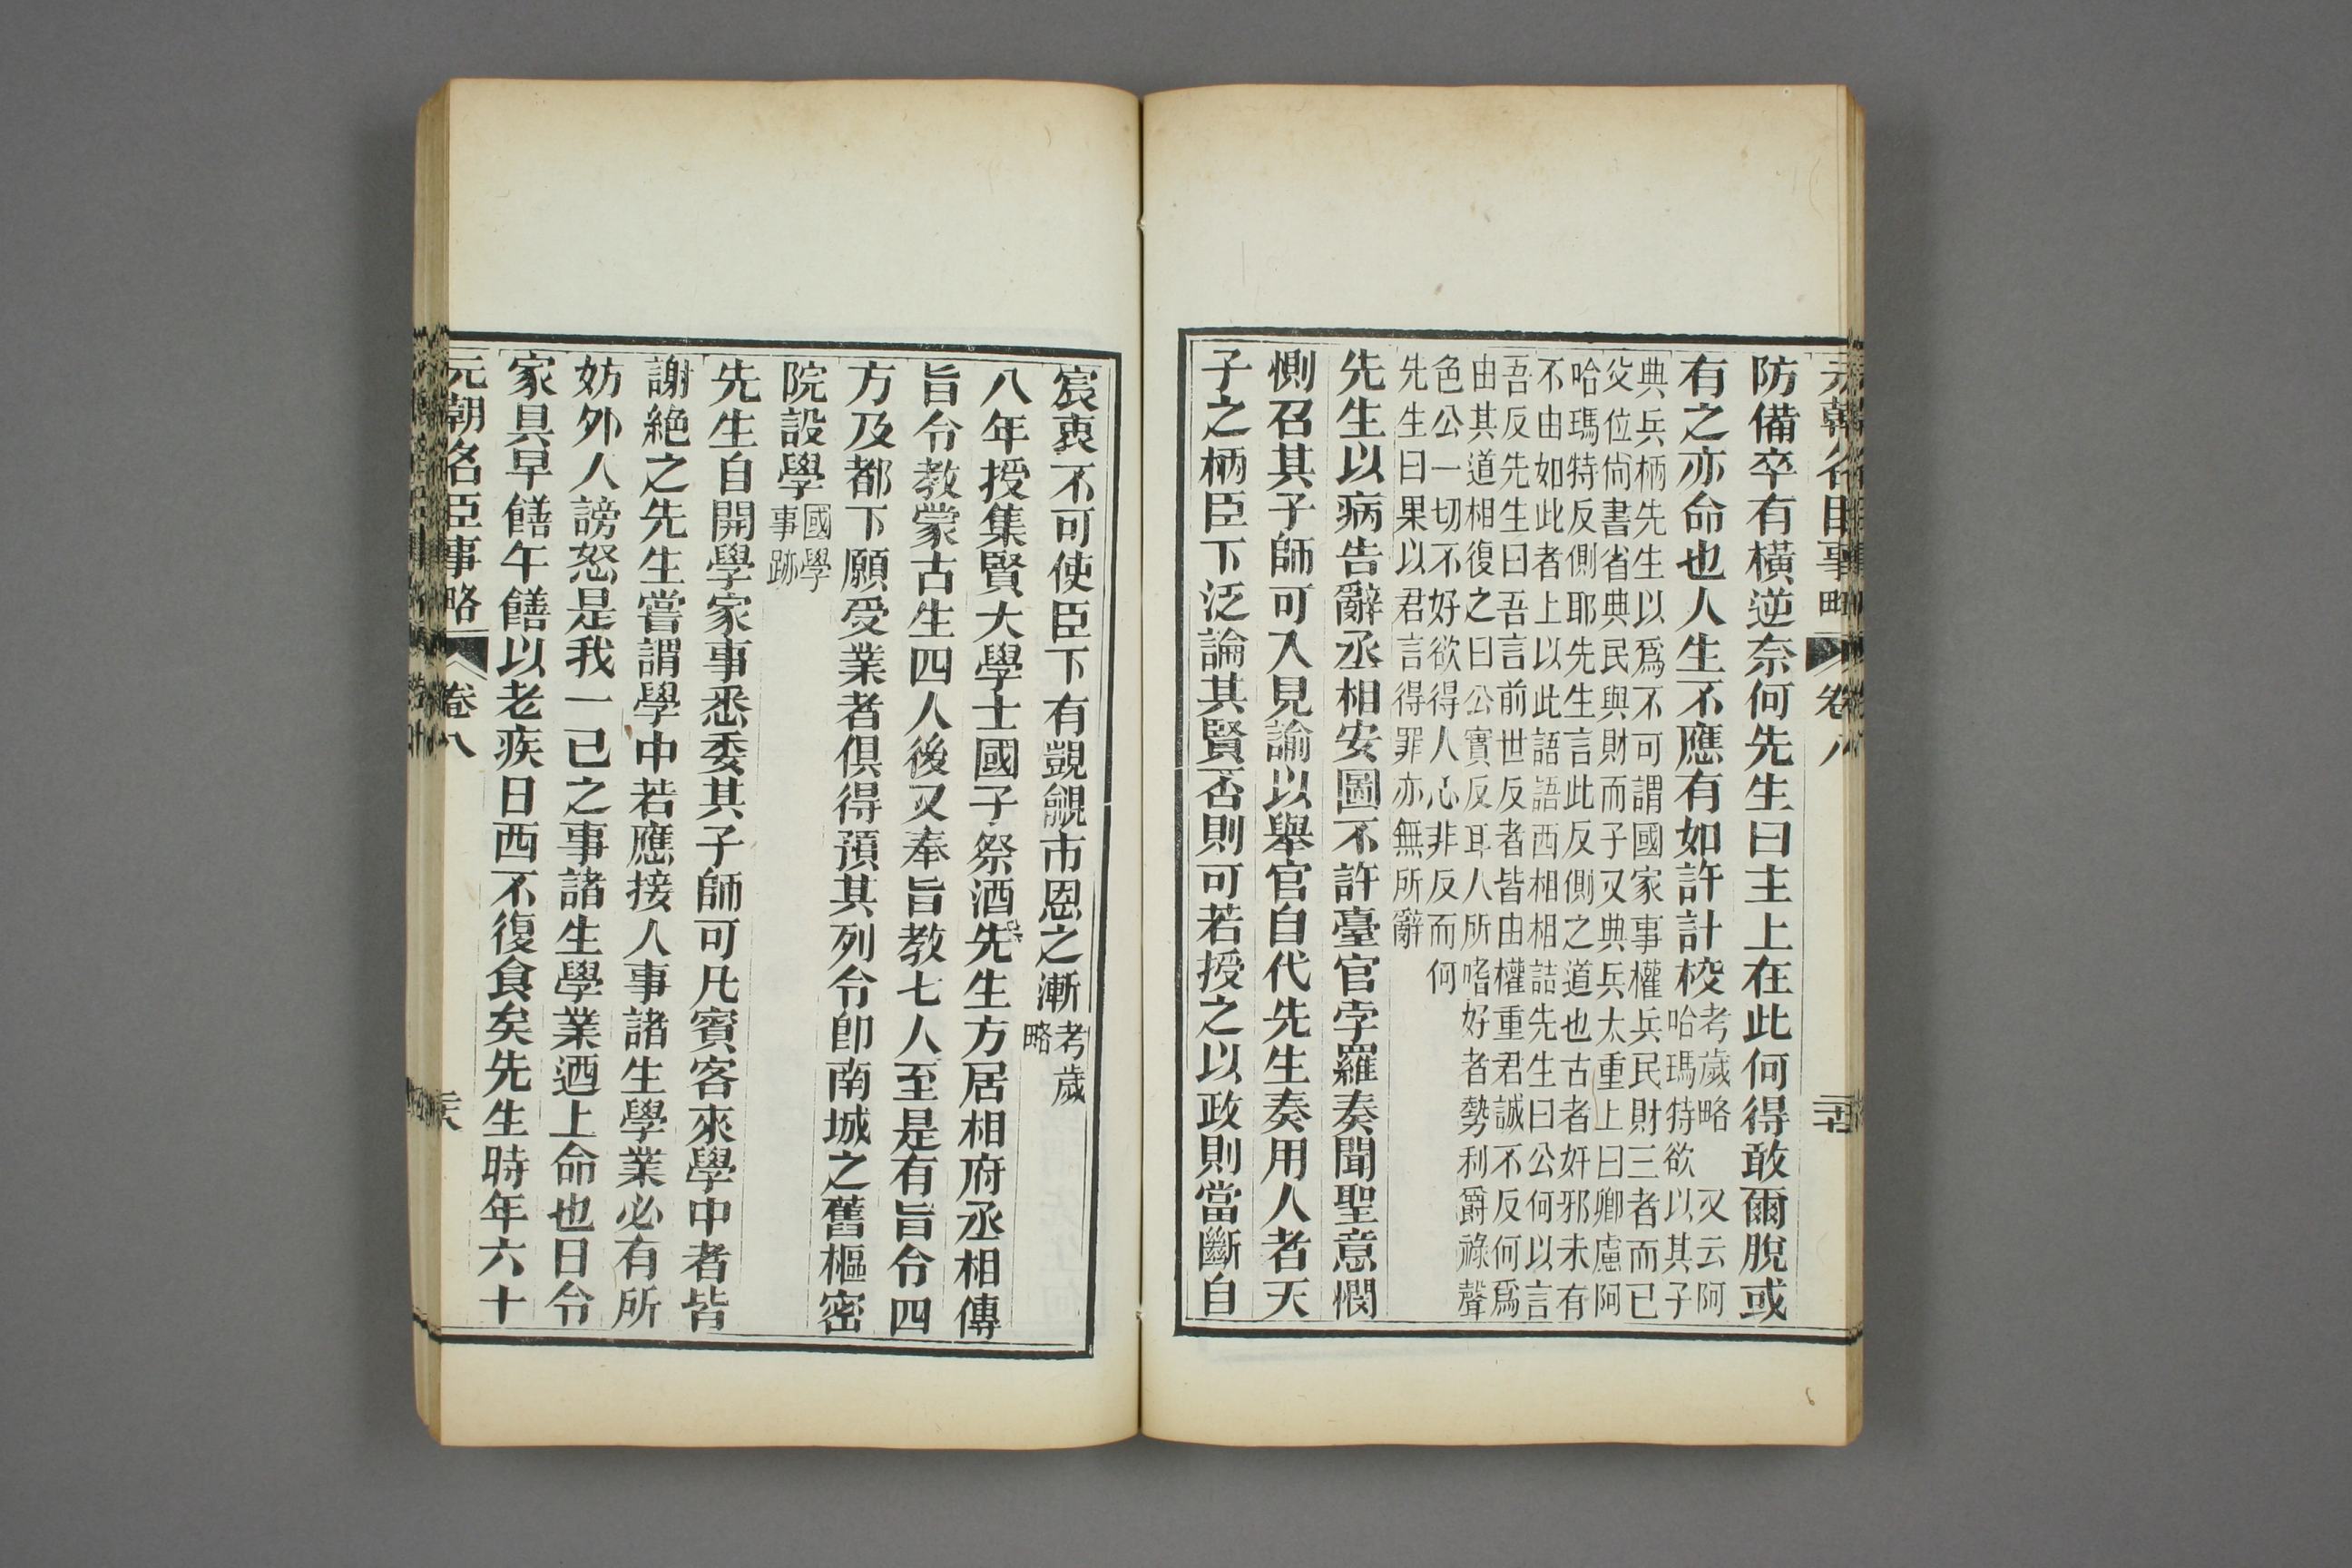 元朝名臣事略 卷八 二十七
防備卒有橫逆奈何先生曰主上在此何得敢爾脫或
有之亦命也人生不應有如許計校
考歲略 又云阿
哈瑪特欲以其子
典兵柄先生以爲不可謂國家事權兵民財三者而已
父位尙書省典民與財而子又典兵太重上曰卿慮阿
哈瑪特反側耶先生言此反側之道也古者奸邪未有
不由如此者上以此語語西相相詰先生曰公何以言
吾反先生曰吾言前世反者皆由權重君誠不反何爲
由其道相復之曰公實反耳人所嗜好者勢利爵祿聲
色公一切不好欲得人心非反而何
先生曰果以君言得罪亦無所辭
先生以病告辭丞相安圖不許臺官孛羅奏聞聖意憫
惻召其子師可入見諭以舉官自代先生奏用人者天
子之柄臣下泛論其賢否則可若授之以政則當斷自
宸衷不可使臣下有覬覦市恩之漸
考歲
略
八年授集賢大學士國子祭酒先生方居相府丞相傳
旨令教蒙古生四人後又奉旨教七人至是有旨令四
方及都下願受業者俱得預其列令卽南城之舊樞密
院設學
國學
事跡
先生自開學家事悉委其子師可凡賓客來學中者皆
謝絶之先生嘗謂學中若應接人事諸生學業必有所
妨外人謗怒是我一己之事諸生學業迺上命也日令
家具早饍午饍以老疾日西不復食矣先生時年六十
元朝名臣事略 卷八 二十八